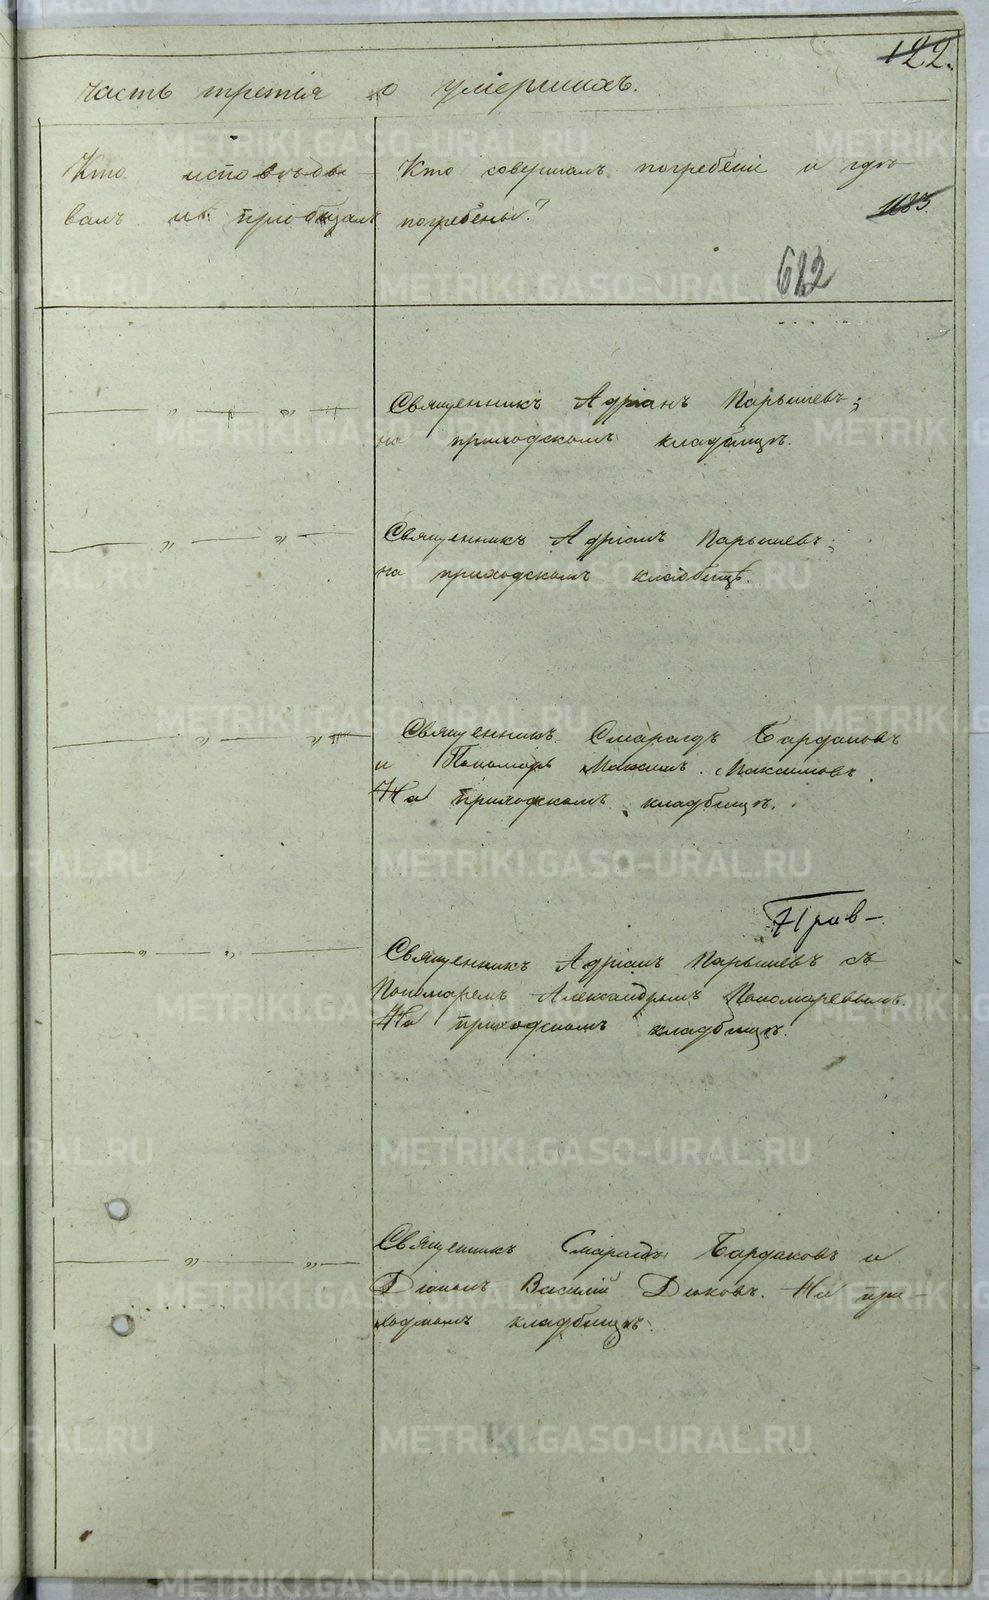 122.
Часть третія о умершихъ.
Кто исповѣды
валъ и пріобщалъ
Кто совершалъ погребеніе и гдѣ
погребены?
1183.
612
Священникъ Адріанъ Парышевъ;
на приходскомъ кладбищѣ.
Священникъ Адріанъ Парышевъ;
на приходскомъ кладбищѣ.
Священникъ Смарагдъ Бардаковъ
и Пономарь Максимъ Максимовъ.
На приходскомъ кладбищѣ.
Священникъ Адріанъ Парышевъ съ
Пономаремъ Александромъ Пономаревымъ.
На приходскомъ кладбищѣ.
Священникъ Смарагдъ Бардаковъ и
Діаконъ Василій Дюковъ. На при-
ходскомъ кладбищѣ.
METRIKI.GASO-URAL.RU